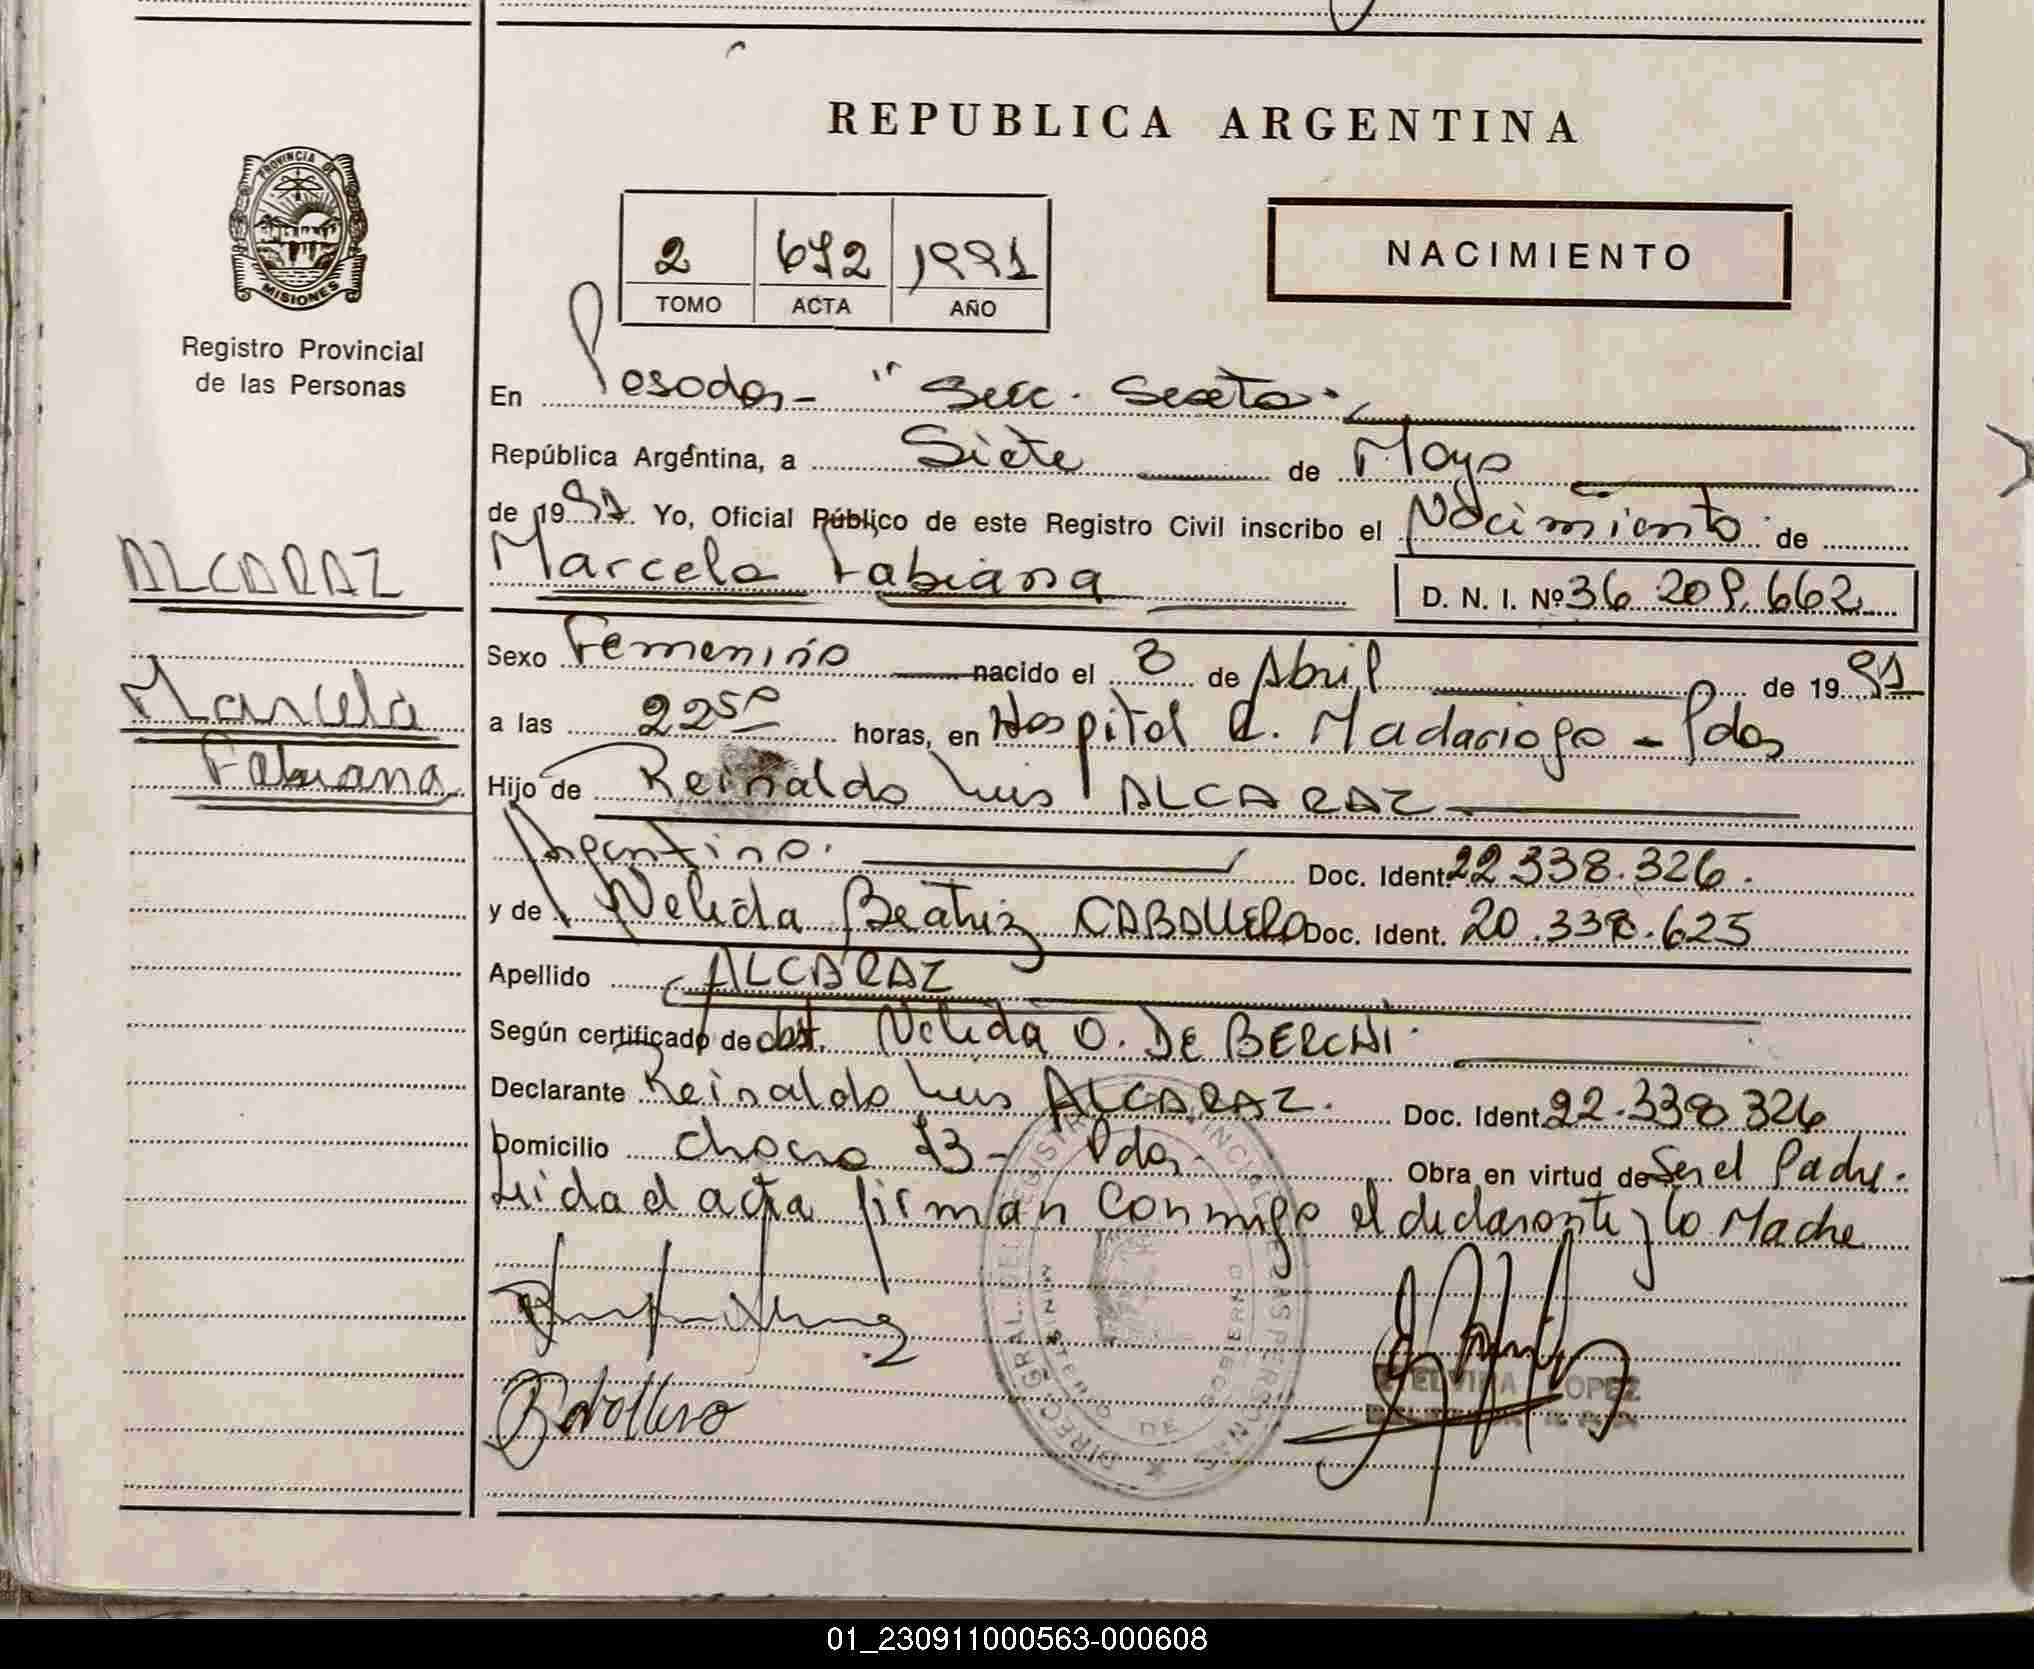 REPUBLICA ARGENTINA
PROVINCIA DE
MISIONES
Registro Provincial
de las Personas
2 672 1991
TOMO ACTA AÑO
NACIMIENTO
En Posadas - "Secc. Sexta."
República Argentina, a Siete de Mayo
de 1991. Yo, Oficial Público de este Registro Civil inscribo el Nacimiento de
Marcela Fabiana D. N. I. Nº 36 209.662
ALCARAZ
Marcela
Fabiana
Sexo Femenino nacido el 8 de Abril de 1991
a las 22 50 horas, en Hospital R. Madariaga - Pdas
Hijo de Reinaldo Luis ALCARAZ
Argentino. Doc. Ident. 22 338.326.
y de Nelida Beatriz CABALLERO Doc. Ident. 20.338.625
Apellido ALCARAZ
Según certificado de obst. Nelida O. DE BERCHI.
Declarante Reinaldo Luis ALCARAZ. Doc. Ident. 22.338 326
Domicilio Chacra 73 - Pdas. Obra en virtud de Ser el Padre.
Leida el acta firman conmigo el declarante y la Madre
DIREC. GRAL. DEL REGISTRO PROVINCIAL DE LAS PERSONAS
MINISTERIO DE GOBIERNO
ELVIRA LOPEZ
01_230911000563-000608